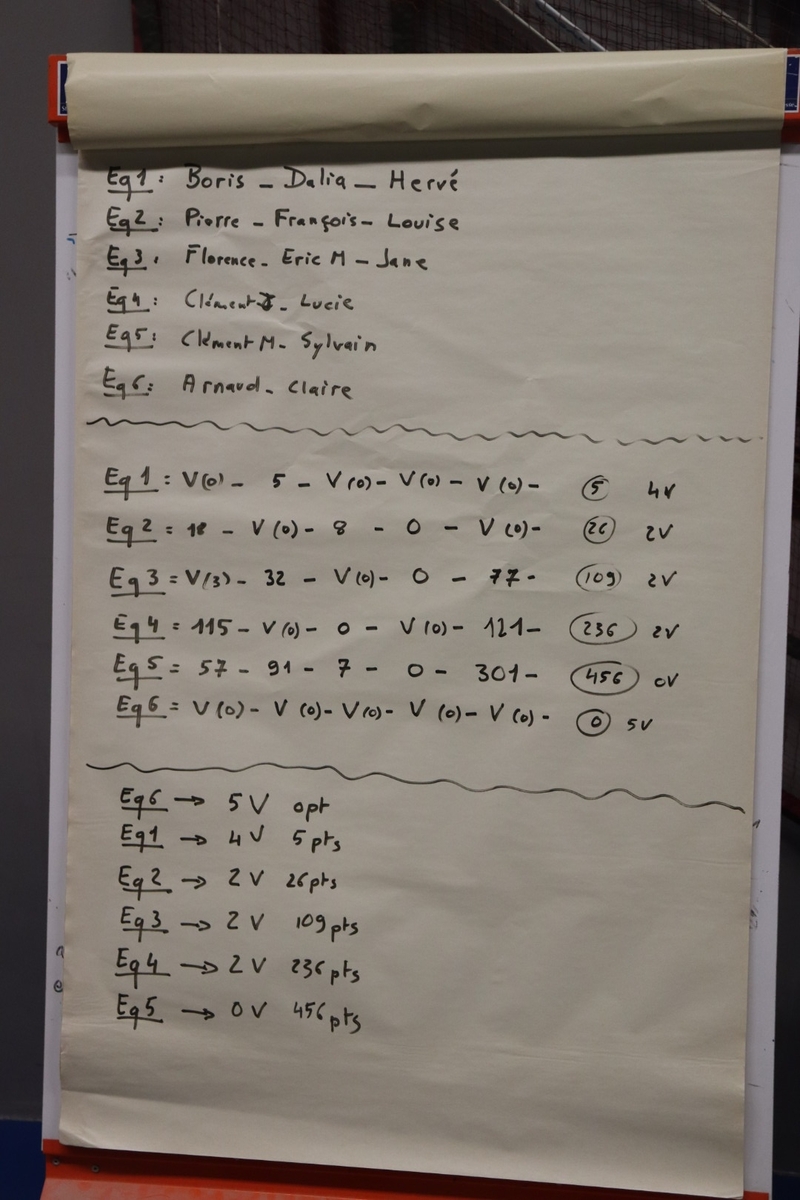 Eq1: Boris - Dalia - Hervé
Eq2: Pierre - François - Louise
Eq3: Florence - Eric M - Jane
Eq4: Clément J - Lucie
Eq5: Clément M - Sylvain
Eq6: Arnaud - Claire
Eq1: V(0) - 5 - V(0) - V(0) - V(0) - 5 4V
Eq2 = 18 - V(0) - 8 - 0 - V(0) - 26 2V
Eq3 = V(3) - 32 - V(0) - 0 - 77 - 109 2V
Eq4 = 115 - V(0) - 0 - V(0) - 121 - 236 2V
Eq5 = 57 - 91 - 7 - 0 - 301 - 456 0V
Eq6 = V(0) - V(0) - V(0) - V(0) - V(0) - 0 5V
Eq6 → 5V 0pt
Eq1 → 4V 5pts
Eq2 → 2V 26pts
Eq3 → 2V 109pts
Eq4 → 2V 236pts
Eq5 → 0V 456pts